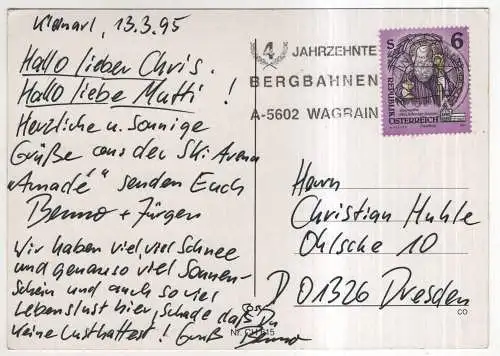 Kleinarl, 13.3.95
Hallo lieber Chris.
Hallo liebe Mutti!
Herzliche u. Sonnige
Grüße aus der Ski Arena
"Amadé" senden Euch
Benno + Jürgen
Wir haben viel, viel Schnee
und genauso viel Sonnen-
schein und auch so viel
Lebenslust hier, schade daß Du
keine Lust hattest! Gruß Benno
4 JAHRZEHNTE
BERGBAHNEN
A-5602 WAGRAIN
S 6
REPUBLIK
ÖSTERREICH
Herrn
Christian Huhle
Ohlsche 10
D 01326 Dresden
CO